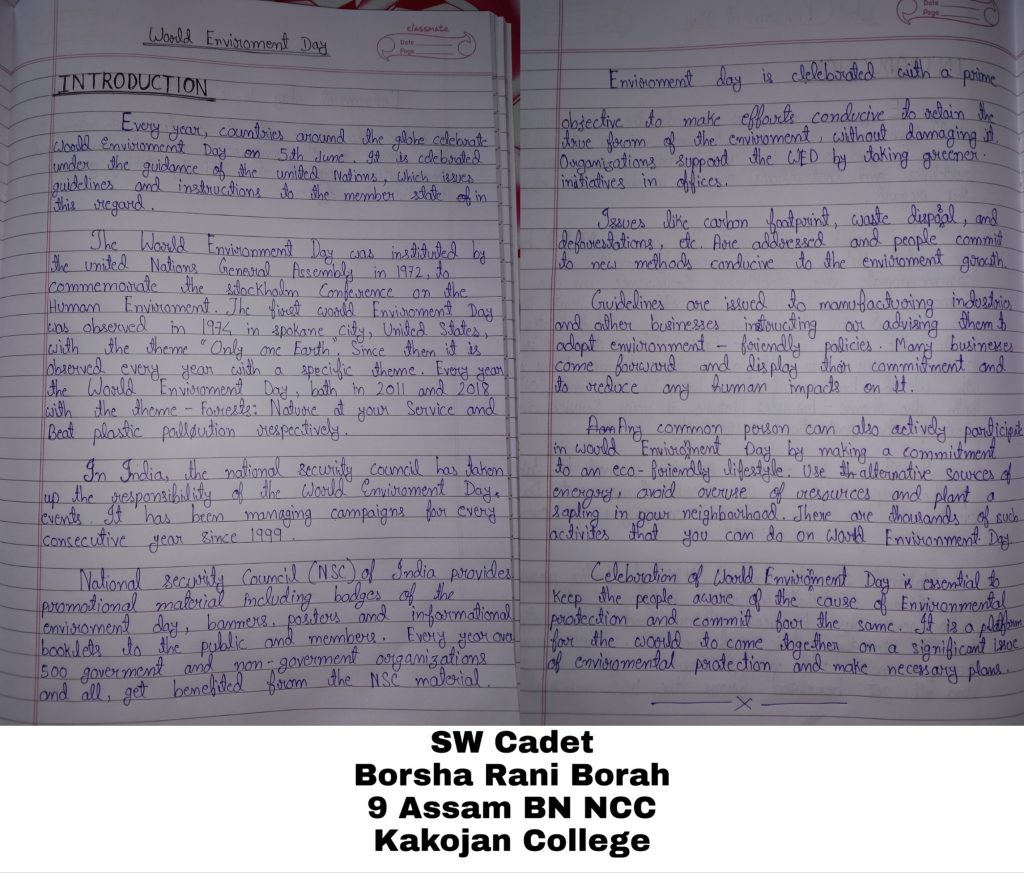 World Enviroment Day
classmate
Date
Page
INTRODUCTION
Every year, countries around the globe celebrate
World Enviroment Day on 5th June. It is celebrated
under the guidance of the united Nations, which issues
guidelines and instructions to the member state of in
this regard.
The World Environment Day was instituted by
the united Nations General Assembly in 1972, to
commemorate the stockholm Conference on the
Human Enviroment. The first world Enviroment Day
was observed in 1974 in spokane city, United States,
with the theme "Only one Earth". Since then it is
observed every year with a specific theme. Every year
the World Enviroment Day, both in 2011 and 2018
with the theme - Forests: Nature at your Service and
Beat plastic pollution respectively.
In India, the national security council has taken
up the responsibility of the World Enviroment Day
events. It has been managing campaigns for every
consecutive year since 1999.
National security Council (NSC) of India provides
promotional material including badges of the
enviroment day, banners, posters and informational
booklets to the public and members. Every year over
500 goverment and non-goverment organizations
and all, get benefited from the NSC material.
Date
Page
Enviroment day is celebrated with a prime
objective to make efforts conducive to retain the
true form of the enviroment, without damaging it.
Organizations support the WED by taking greener
initiatives in offices.
Issues like carbon footprint, waste disposal, and
deforestations, etc. Are addressed and people commit
to new methods conducive to the enviroment growth.
Guidelines are issued to manufacturing industries
and other businesses instructing or advising them to
adopt environment - friendly policies. Many businesses
come forward and display their commitment and
to reduce any human impacts on It.
Any common person can also actively participate
in world Enviroment Day by making a commitment
to an eco-friendly lifestyle. Use alternative sources of
energry, avoid overuse of resources and plant a
sapling in your neighbourhood. There are thousands of such
activites that you can do on World Environment Day.
Celebration of World Enviroment Day is essential to
keep the people aware of the cause of Environmental
protection and commit for the same. It is a platform
for the world to come together on a significant issue
of enviromental protection and make necessary plans.
X
SW Cadet
Borsha Rani Borah
9 Assam BN NCC
Kakojan College